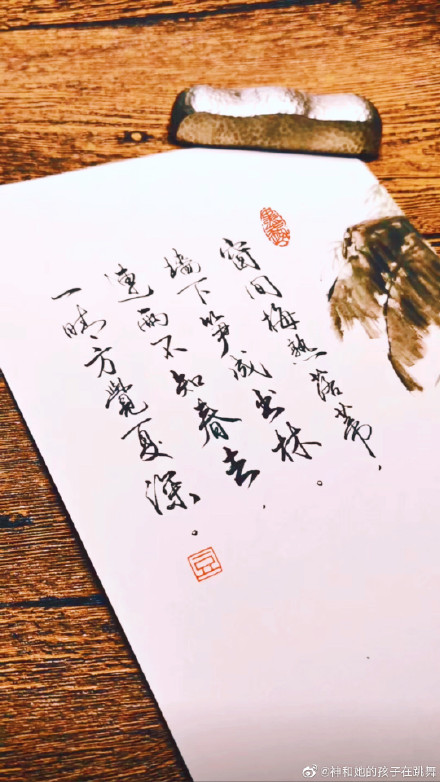 窗间梅熟落蒂，
墙下笋成出林。
連雨不知春去，
一晴方覺夏深。
@神和她的孩子在跳舞